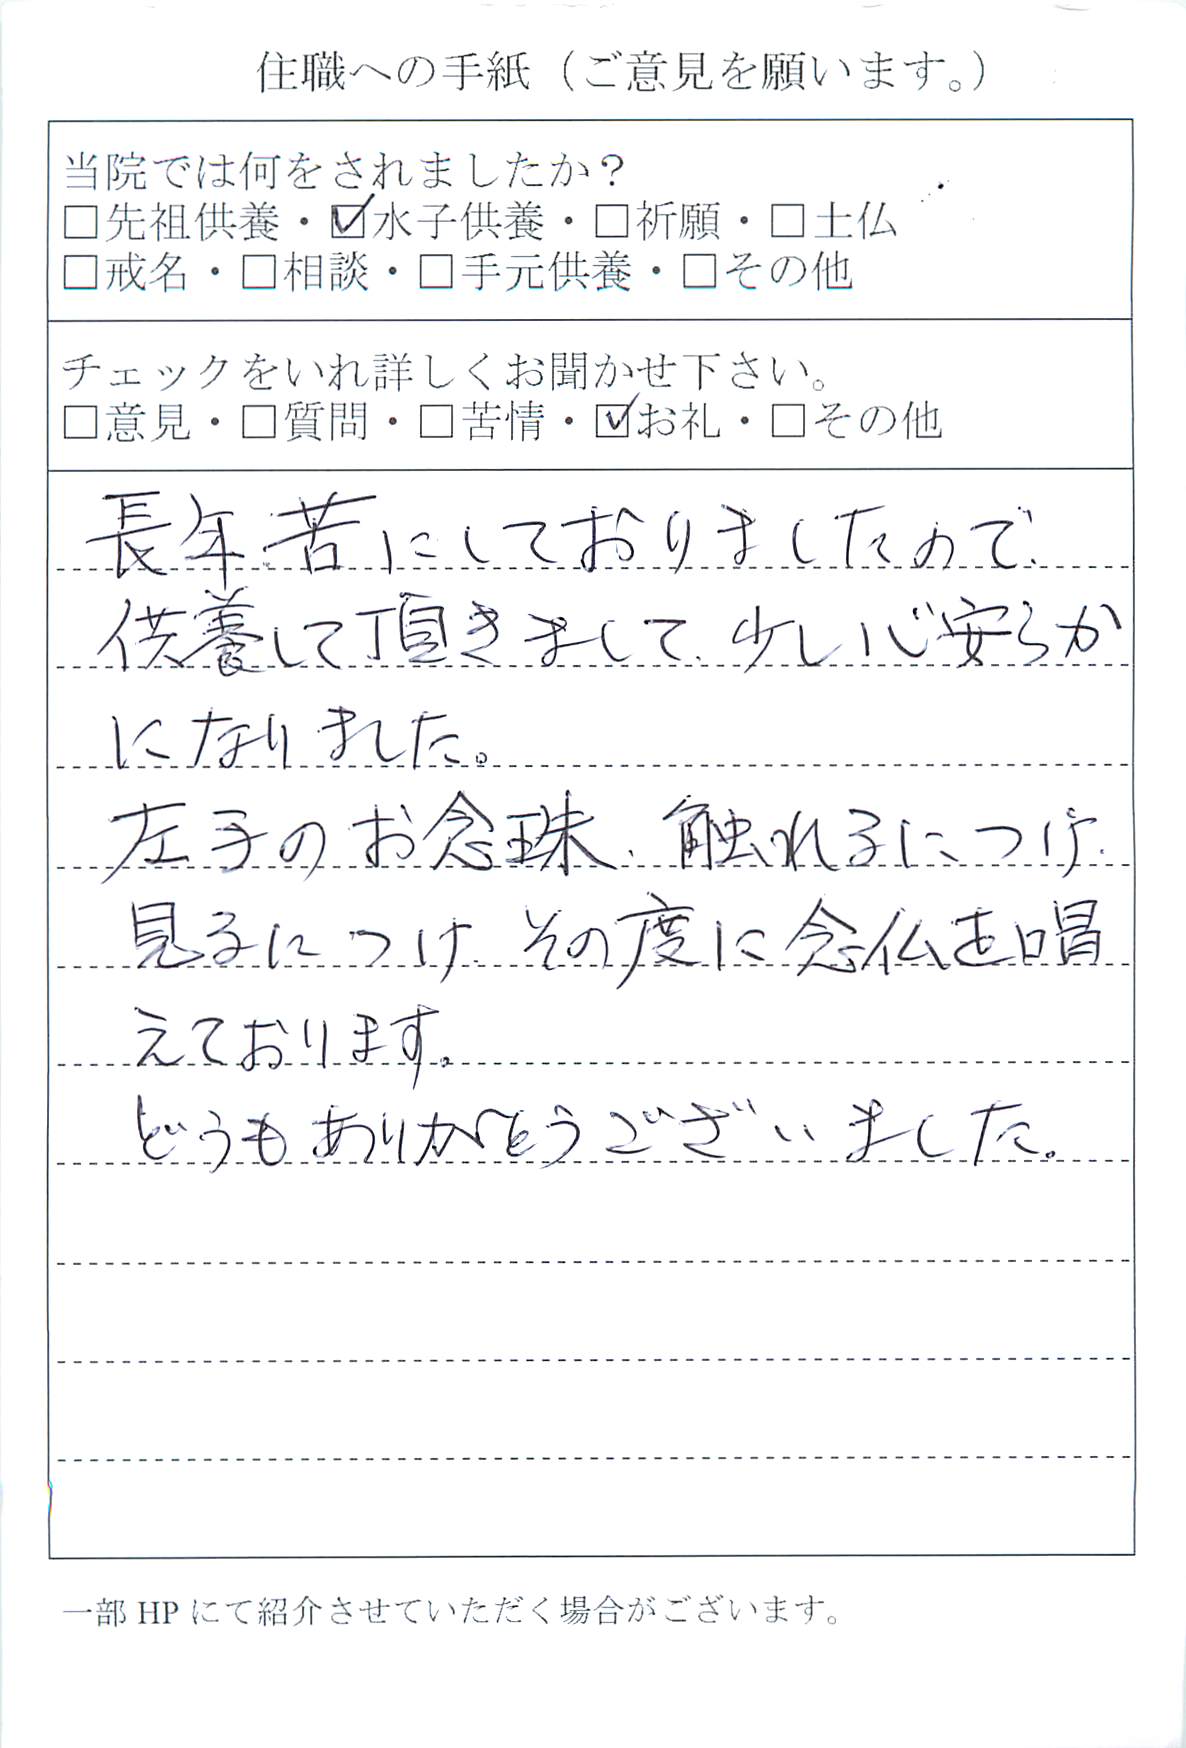 住職への手紙（ご意見を願います。）
当院では何をされましたか？
□先祖供養・☑水子供養・□祈願・□土仏
□戒名・□相談・□手元供養・□その他
チェックをいれ詳しくお聞かせ下さい。
□意見・□質問・□苦情・☑お礼・□その他
長年苦にしておりましたので、
供養して頂きまして、少し心安らか
になりました。
左手のお念珠、触れるにつけ、
見るにつけ、その度に念仏を唱
えております。
どうもありがとうございました。
一部HPにて紹介させていただく場合がございます。